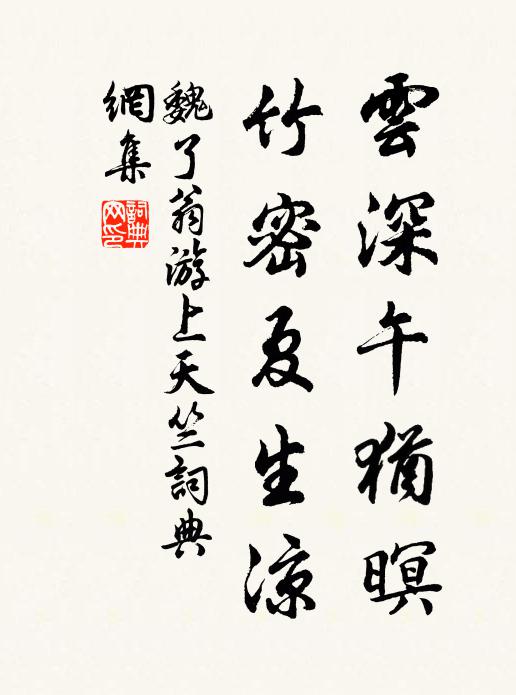 雲深午猶暝
竹密夏生涼
魏了翁游上天竺詞典
網集
詞典
网印